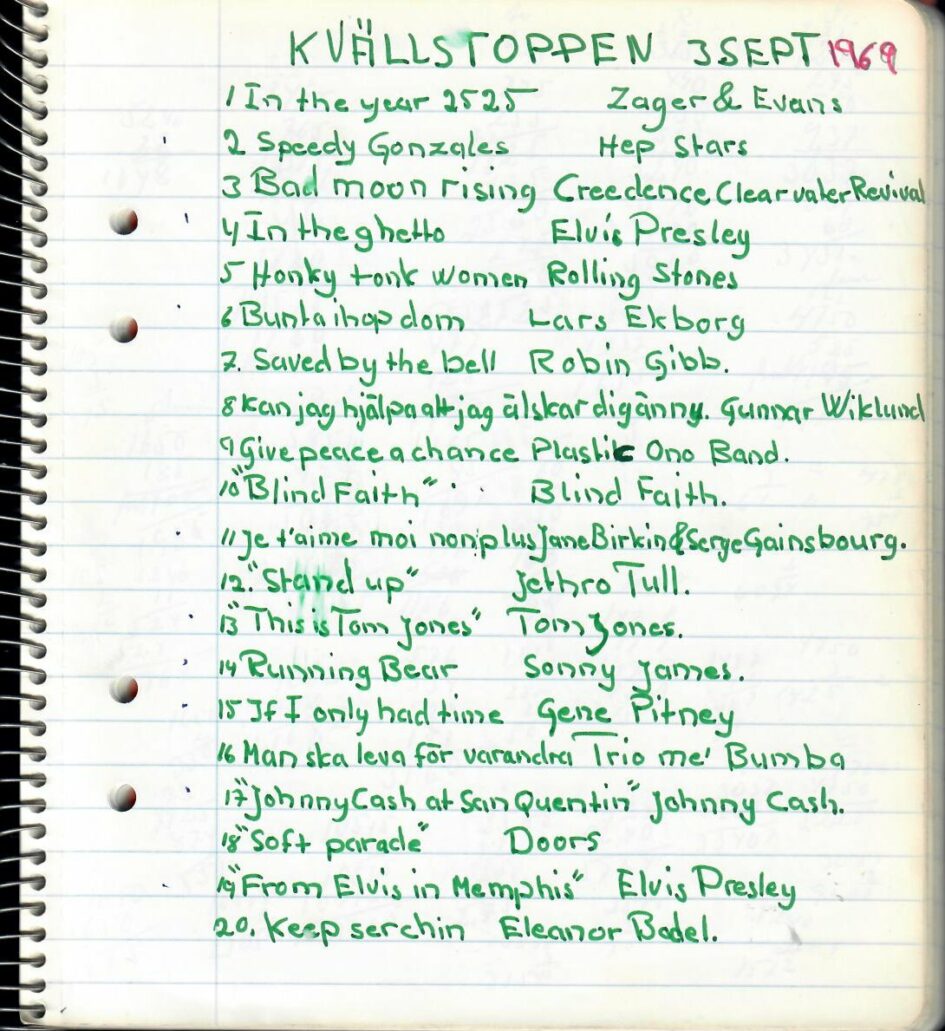 KVÄLLSTOPPEN 3 SEPT 1969
1 In the year 2525 Zager & Evans
2 Speedy Gonzales Hep Stars
3 Bad moon rising Creedence Clearvater Revival
4 In the ghetto Elvis Presley
5 Honky tonk women Rolling Stones
6 Bunta ihop dom Lars Ekborg
7. Saved by the bell Robin Gibb.
8 Kan jag hjälpa att jag älskar dig änny. Gunnar Wiklund
9 Give peace a chance Plastic Ono Band.
10 "Blind Faith" Blind Faith.
11 Je t'aime moi non plus Jane Birkin & Serge Gainsbourg.
12. "Stand up" Jethro Tull.
13 "This is Tom Jones" Tom Jones.
14 Running Bear Sonny James.
15 If I only had time Gene Pitney
16 Man ska leva för varandra Trio me' Bumba
17 "Johnny Cash at San Quentin" Johnny Cash.
18 "Soft parade" Doors
19 "From Elvis in Memphis" Elvis Presley
20. Keep serchin Eleanor Bodel.